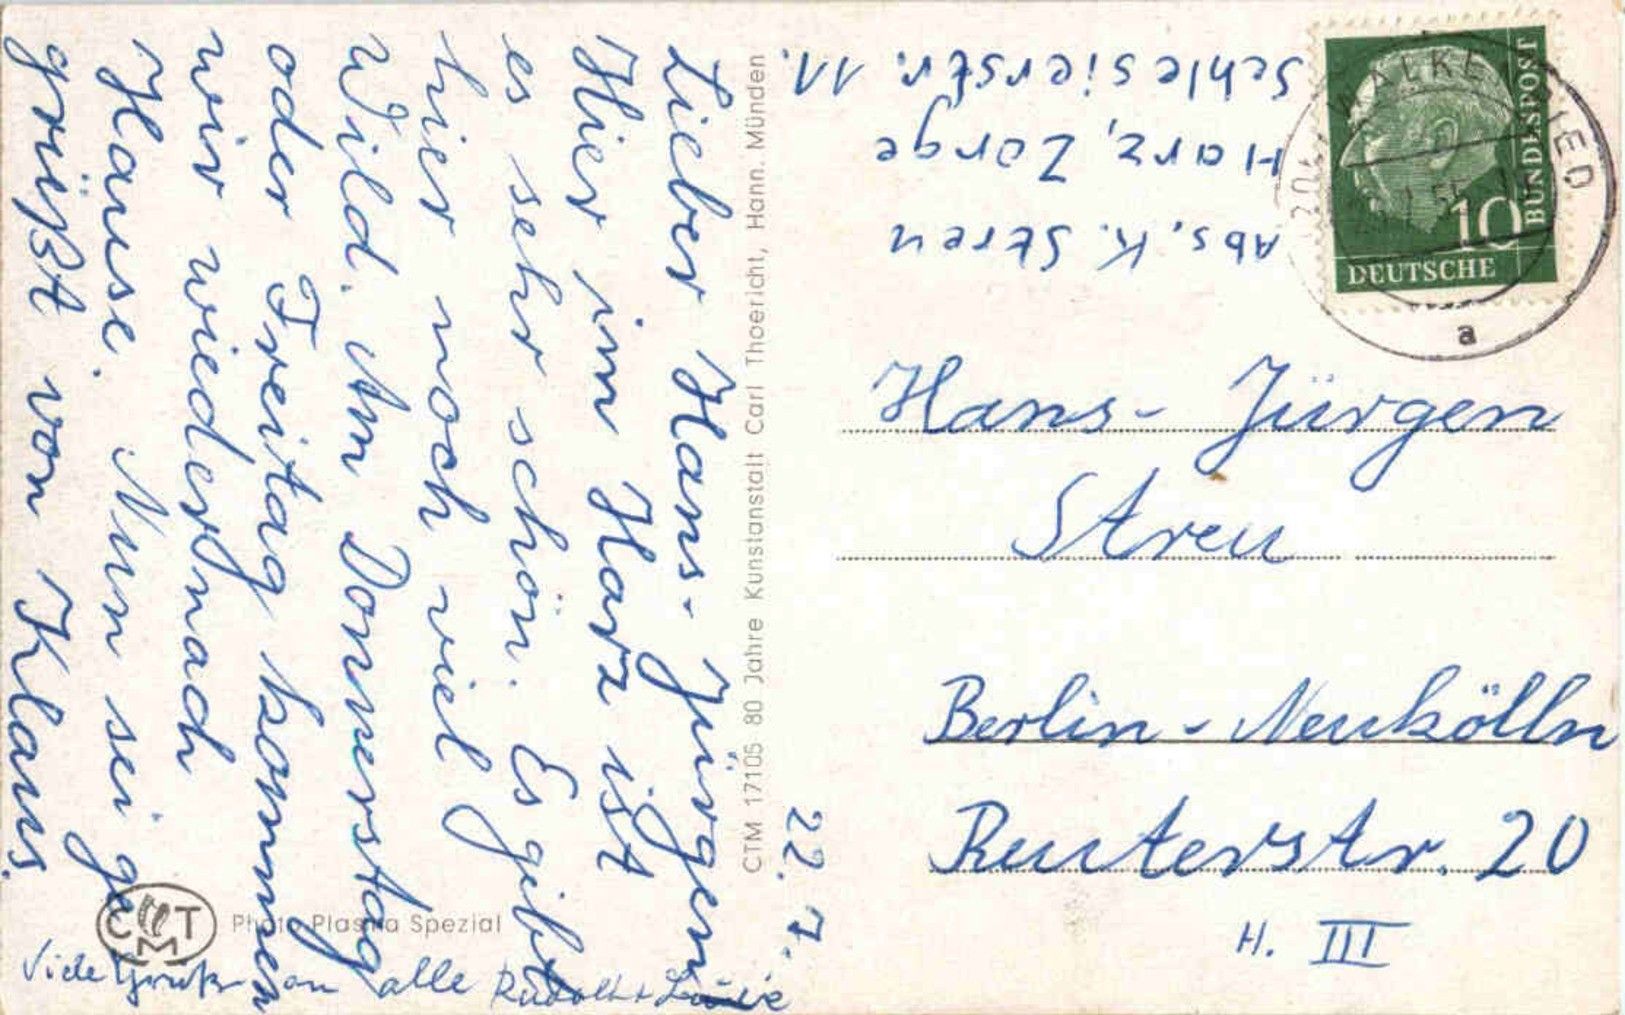 22. 7.
Lieber Hans-Jürgen
Hier im Harz ist
es sehr schön. Es gibt
hier noch viel
Wild. Am Donnerstag
oder Freitag kommen
wir wieder nach
Hause. Nun sei ge
grüßt von Klaus.
Viele Grüße an alle Rudolf +
CTM 17105 80 Jahre Kunstanstalt Carl Thoericht, Hann. Münden
Photo Plasma Spezial
CMT
Abs. K. Streu
Harz, Zorge
Schlesierstr. 11.
DEUTSCHE
BUNDESPOST
10
WALKENRIED
a
Hans-Jürgen
Streu
Berlin-Neukölln
Reuterstr. 20
H. III